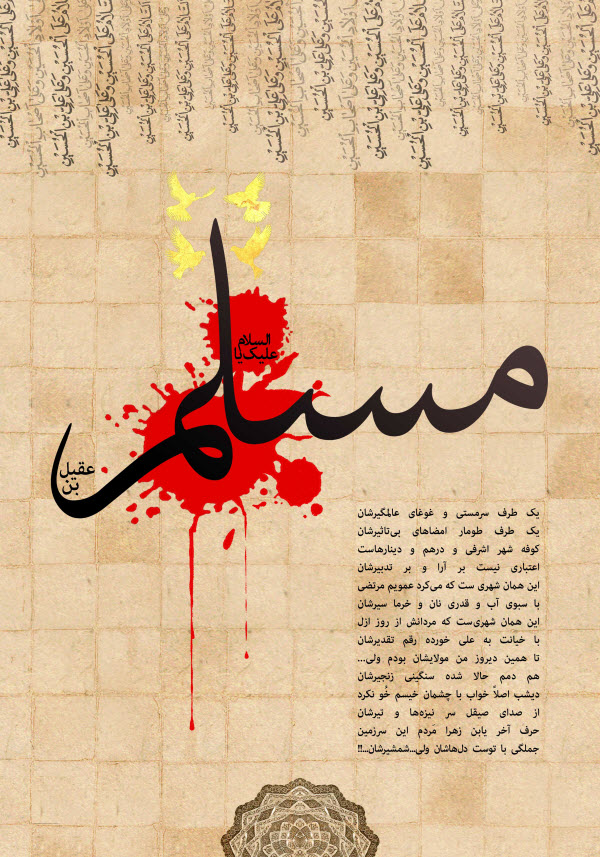 السلام
علیک یا
مسلم
بن
عقیل
یک طرف سرمستی و غوغای عالمگیرشان
یک طرف طومار امضاهای بی‌تاثیرشان
کوفه شهر اشرفی و درهم و دینارهاست
اعتباری نیست بر آرا و بر تدبیرشان
این همان شهری ست که می‌کرد عمویم مرتضی
با سبوی آب و قدری نان و خرما سیرشان
این همان شهری‌ست که مردانش از روز ازل
با خیانت به علی خورده رقم تقدیرشان
تا همین دیروز من مولایشان بودم ولی...
هم دمم حالا شده سنگینی زنجیرشان
دیشب اصلاً خواب با چشمان خیسم خُو نکرد
از صدای صیقل سر نیزه‌ها و تیرشان
حرف آخر یابن زهرا مَردم این سرزمین
جملگی با توست دل‌هاشان ولی...شمشیرشان...!!